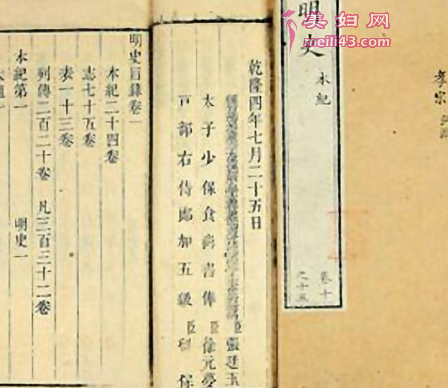 美妇网
meili43.com
明史
本紀
卷十
之十五
乾隆四年七月二十五日
臣張廷玉
太子少保食尚書俸臣徐元夢
戸部右侍郎加五級臣
明史目錄卷一
本紀二十四卷
志七十五卷
表一十三卷
列傳二百二十卷 凡三百三十二卷
本紀第一 明史一